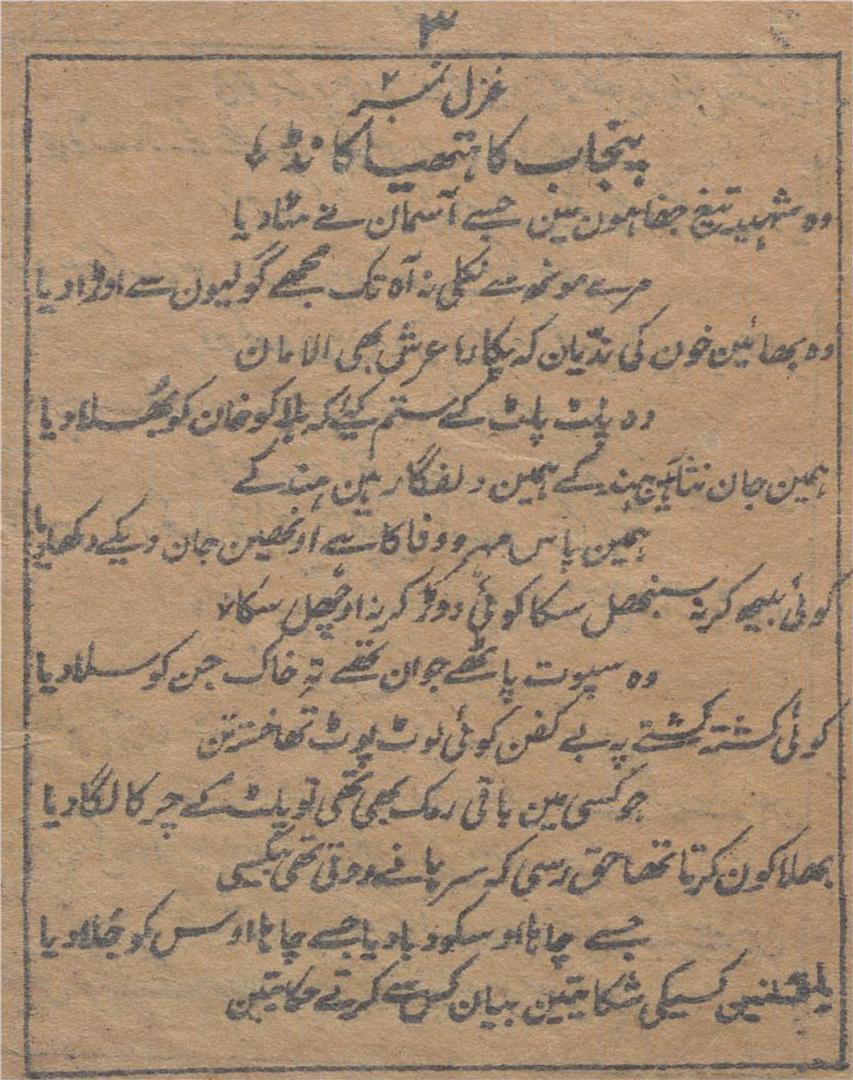 ۳
غزل نمبر ۲
پنجاب کا ہتھیا کانڈ
وہ شہید تیغ جفا ہون مین جسے آسمان نے مٹا دیا
مرے مونھ سے نکلی نہ آہ تک مجھے گولیون سے اوڑا دیا
وہ بھائین خون کی ندّیان کہ پکارا عرش بھی الامان
وہ پلٹ پلٹ کے ستم کیے کہ ہلاکو خان کو بھُلا دیا
ہمین جان نثار ہین ہند کے ہمین دلفگار ہین ہند کے
ہمین پاس مہر و وفا کا ہے اونھین جان دیکے دکھا دیا
کوئی بیٹھ کر نہ سنبھل سکا کوئی دوڑ کر نہ اوچھل سکا
وہ سپوت پاٹھے جوان تھے تہِ خاک جن کو سلا دیا
کوئی کشتہ کشتے پہ بے کفن کوئی لوٹ پوٹ تھا خستہ تن
جو کسی مین باقی رمک بھی تھی تو پلٹ کے چرکا لگا دیا
بھلا کون کرتا تھا حق رسی کہ سرہانے روتی تھی بیکسی
جسے چاہا اوسکو دبا دیا جسے چاہا اوس کو جلا دیا
کسیکی شکایتین بیان کس سے کرتے حکایتین